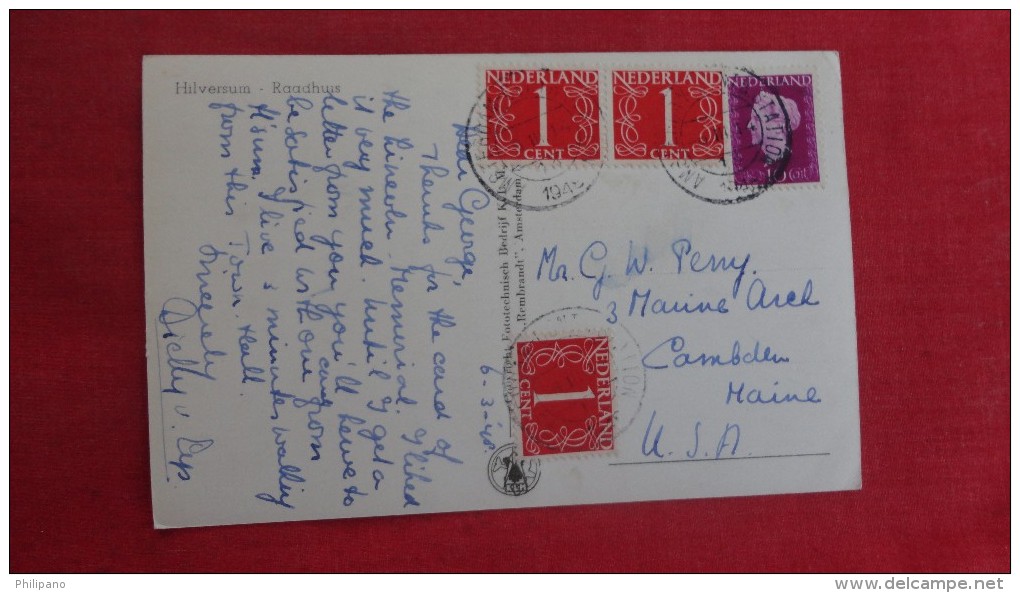 Hilversum - Raadhuis
Dear George,
Thanks for the card of
the Lincoln-Memorial. I liked
it very much. Until I get a
letter from you you'll have to
be satisfied with one card from
H'sum. I live 3 minutes walking
from this Town-Hall.
Sincerely
Dicky v. Dys.
6-3-48.
Fototechnisch Bedrijf
"Rembrandt", Amsterdam
NEDERLAND
1
CENT
NEDERLAND
1
CENT
NEDERLAND
10 cent
1948
STATION
NEDERLAND
1
CENT
Mr. G. W. Perry.
3 Marine Arch
Cambden
Maine
U.S.A.
Philipano
delcampe.net